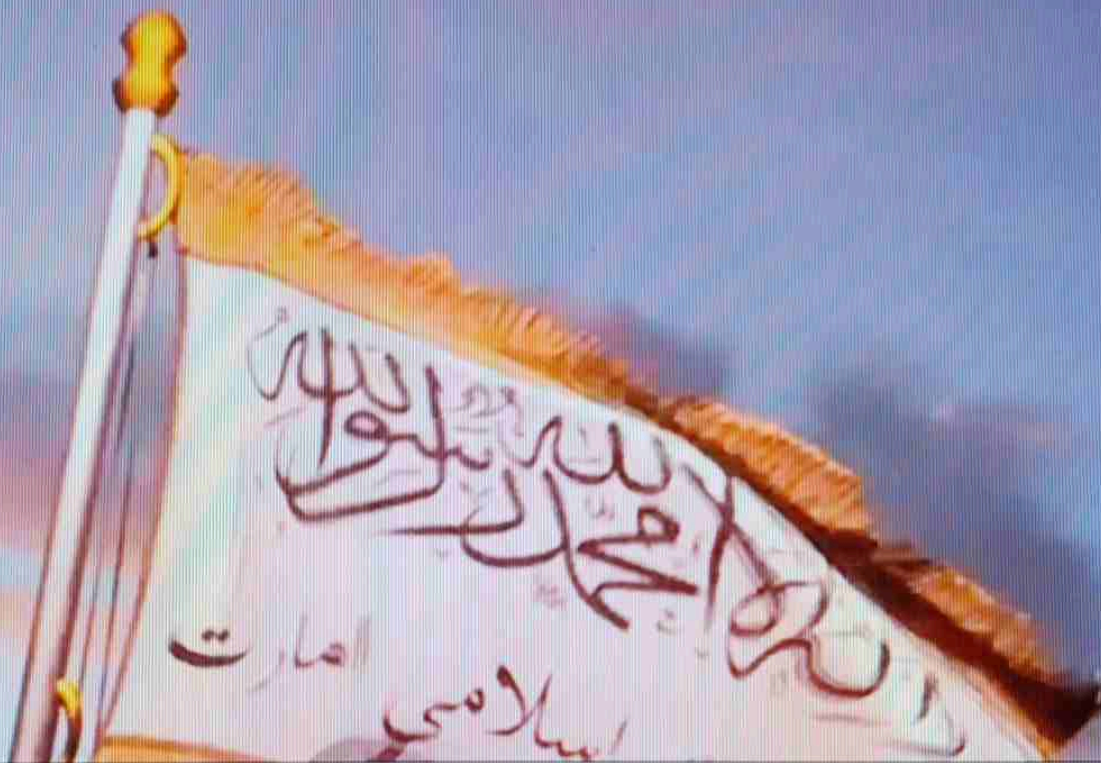 لا اله الا الله محمد رسول الله
امارت
اسلامی